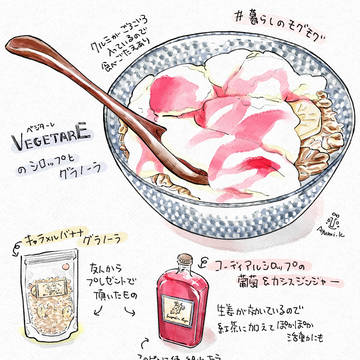 #暮らしのモグモグ
クルミがごろごろ
入っているので
食べごたえあり
ベジターレ
VEGETARE
のシロップと
グラノーラ
Ayumi.K
キャラメルバナナ
グラノーラ
友人から
プレゼントで
頂いたもの
コーディアルシロップの
葡萄&カシスジンジャー
生姜が効いているので
紅茶に加えてぽかぽか